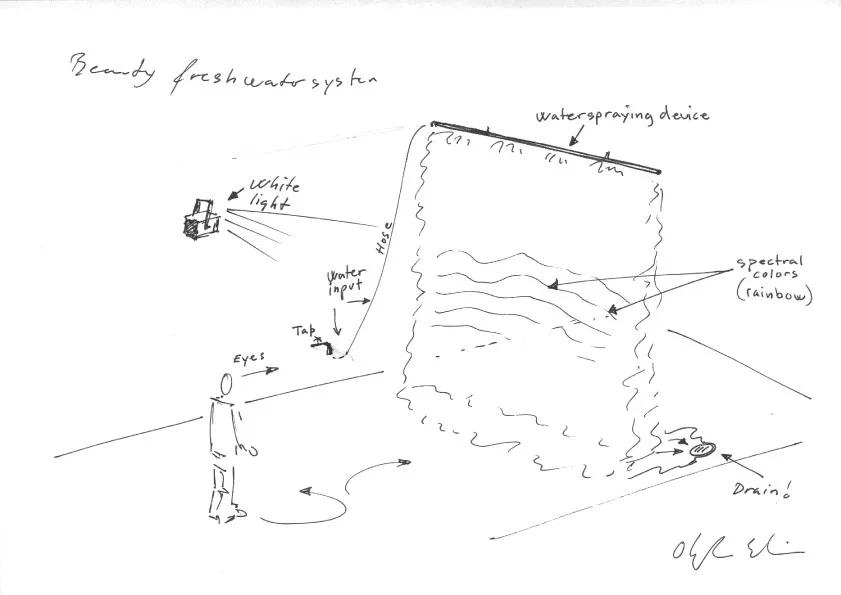 Beauty freshwatersystem
waterspraying device
white
light
Hose
water
input
spectral
colors
(rainbow)
Tap
Eyes
Drain!